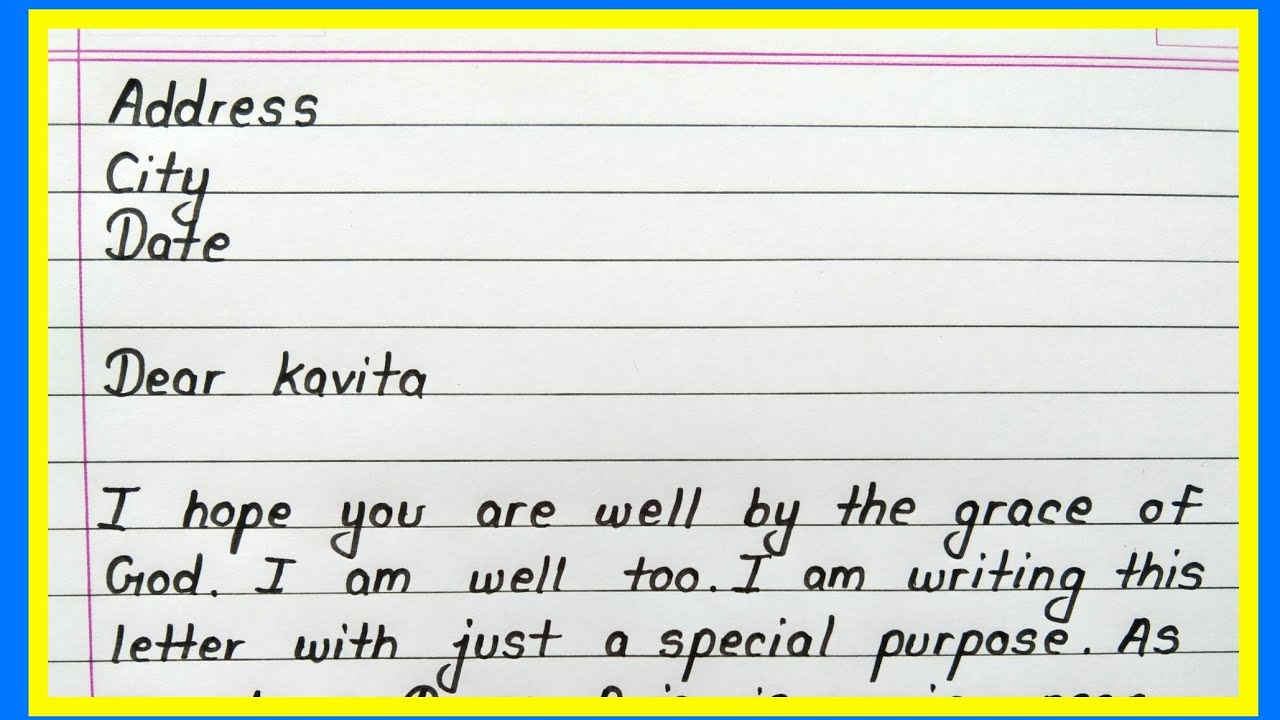 Address
City
Date
Dear kavita
I hope you are well by the grace of
God. I am well too. I am writing this
letter with just a special purpose. As